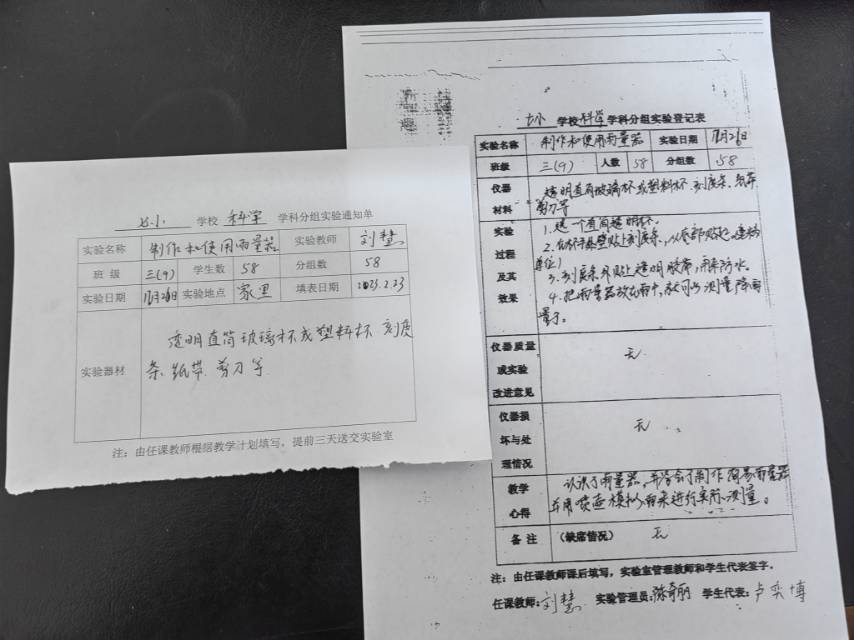 七小 学校 科学 学科分组实验通知单
实验名称 制作和使用雨量器 实验教师 刘慧
班级 三(9) 学生数 58 分组数 58
实验日期 11月26日 实验地点 家里 填表日期 2023.2.23
实验器材 透明直筒玻璃杯或塑料杯 刻度
条、纸带、剪刀等
注:由任课教师根据教学计划填写,提前三天送交实验室
七小 学校科学学科分组实验登记表
实验名称 制作和使用雨量器 实验日期 11月26日
班级 三(9) 人数 58 分组数 58
仪器材料 透明直筒玻璃杯或塑料杯、刻度条、纸带
剪刀等
实验过程及其效果 1.选一个直筒透明杯。
2.在杯子外壁贴上刻度条,从底部贴起。
单位)
3.刻度条外贴上透明胶带,用来防水。
4.把雨量器放在雨中,就可以测量降雨
量了。
仪器质量或实验改进意见 无
仪器损坏与处理情况 无
教学心得 认识了雨量器,并学会了制作简易雨量器
并用喷壶模拟下雨来进行实际测量。
备注 (缺席情况) 无
注:由任课教师课后填写,实验室管理教师和学生代表签字。
任课教师:刘慧 实验管理员:陈奇丽 学生代表:卢奕博